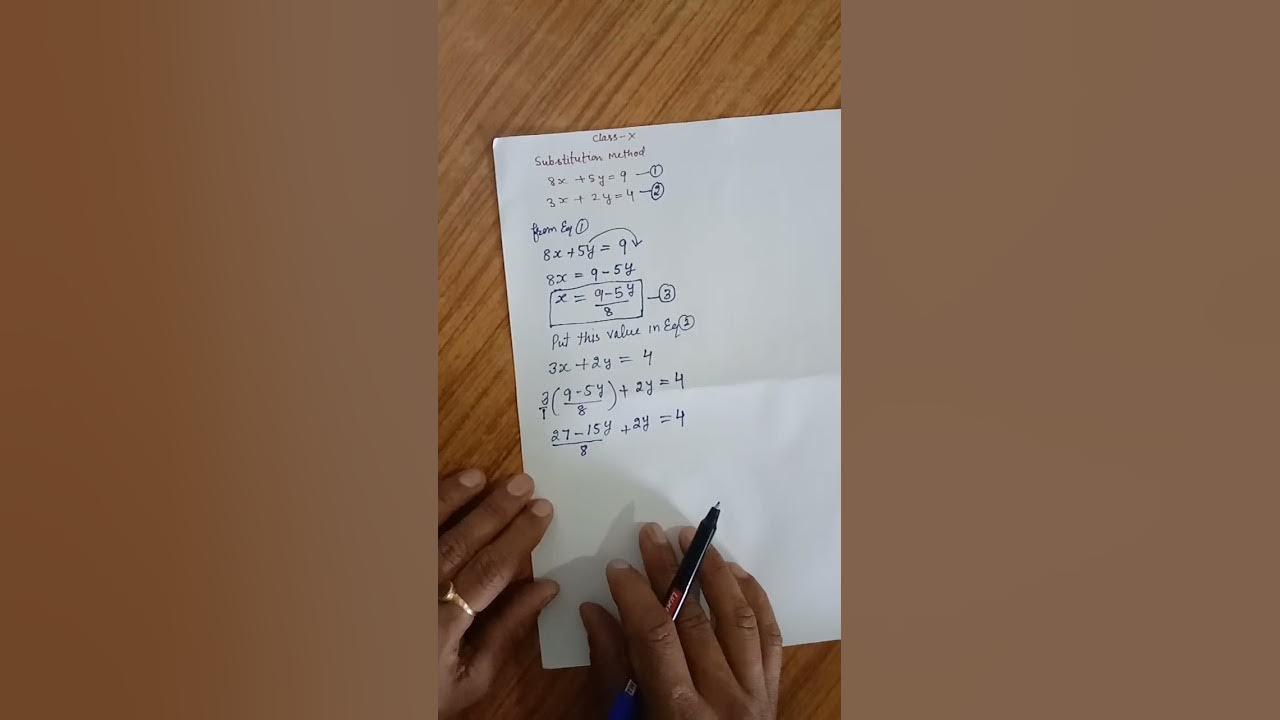 Class-X
Substitution Method
8x + 5y = 9 —①
3x + 2y = 4 —②
from Eq ①
8x + 5y = 9
8x = 9 - 5y
x = (9-5y)/8 —③
Put this value in Eq ②
3x + 2y = 4
3/1 ((9-5y)/8) + 2y = 4
(27-15y)/8 + 2y = 4